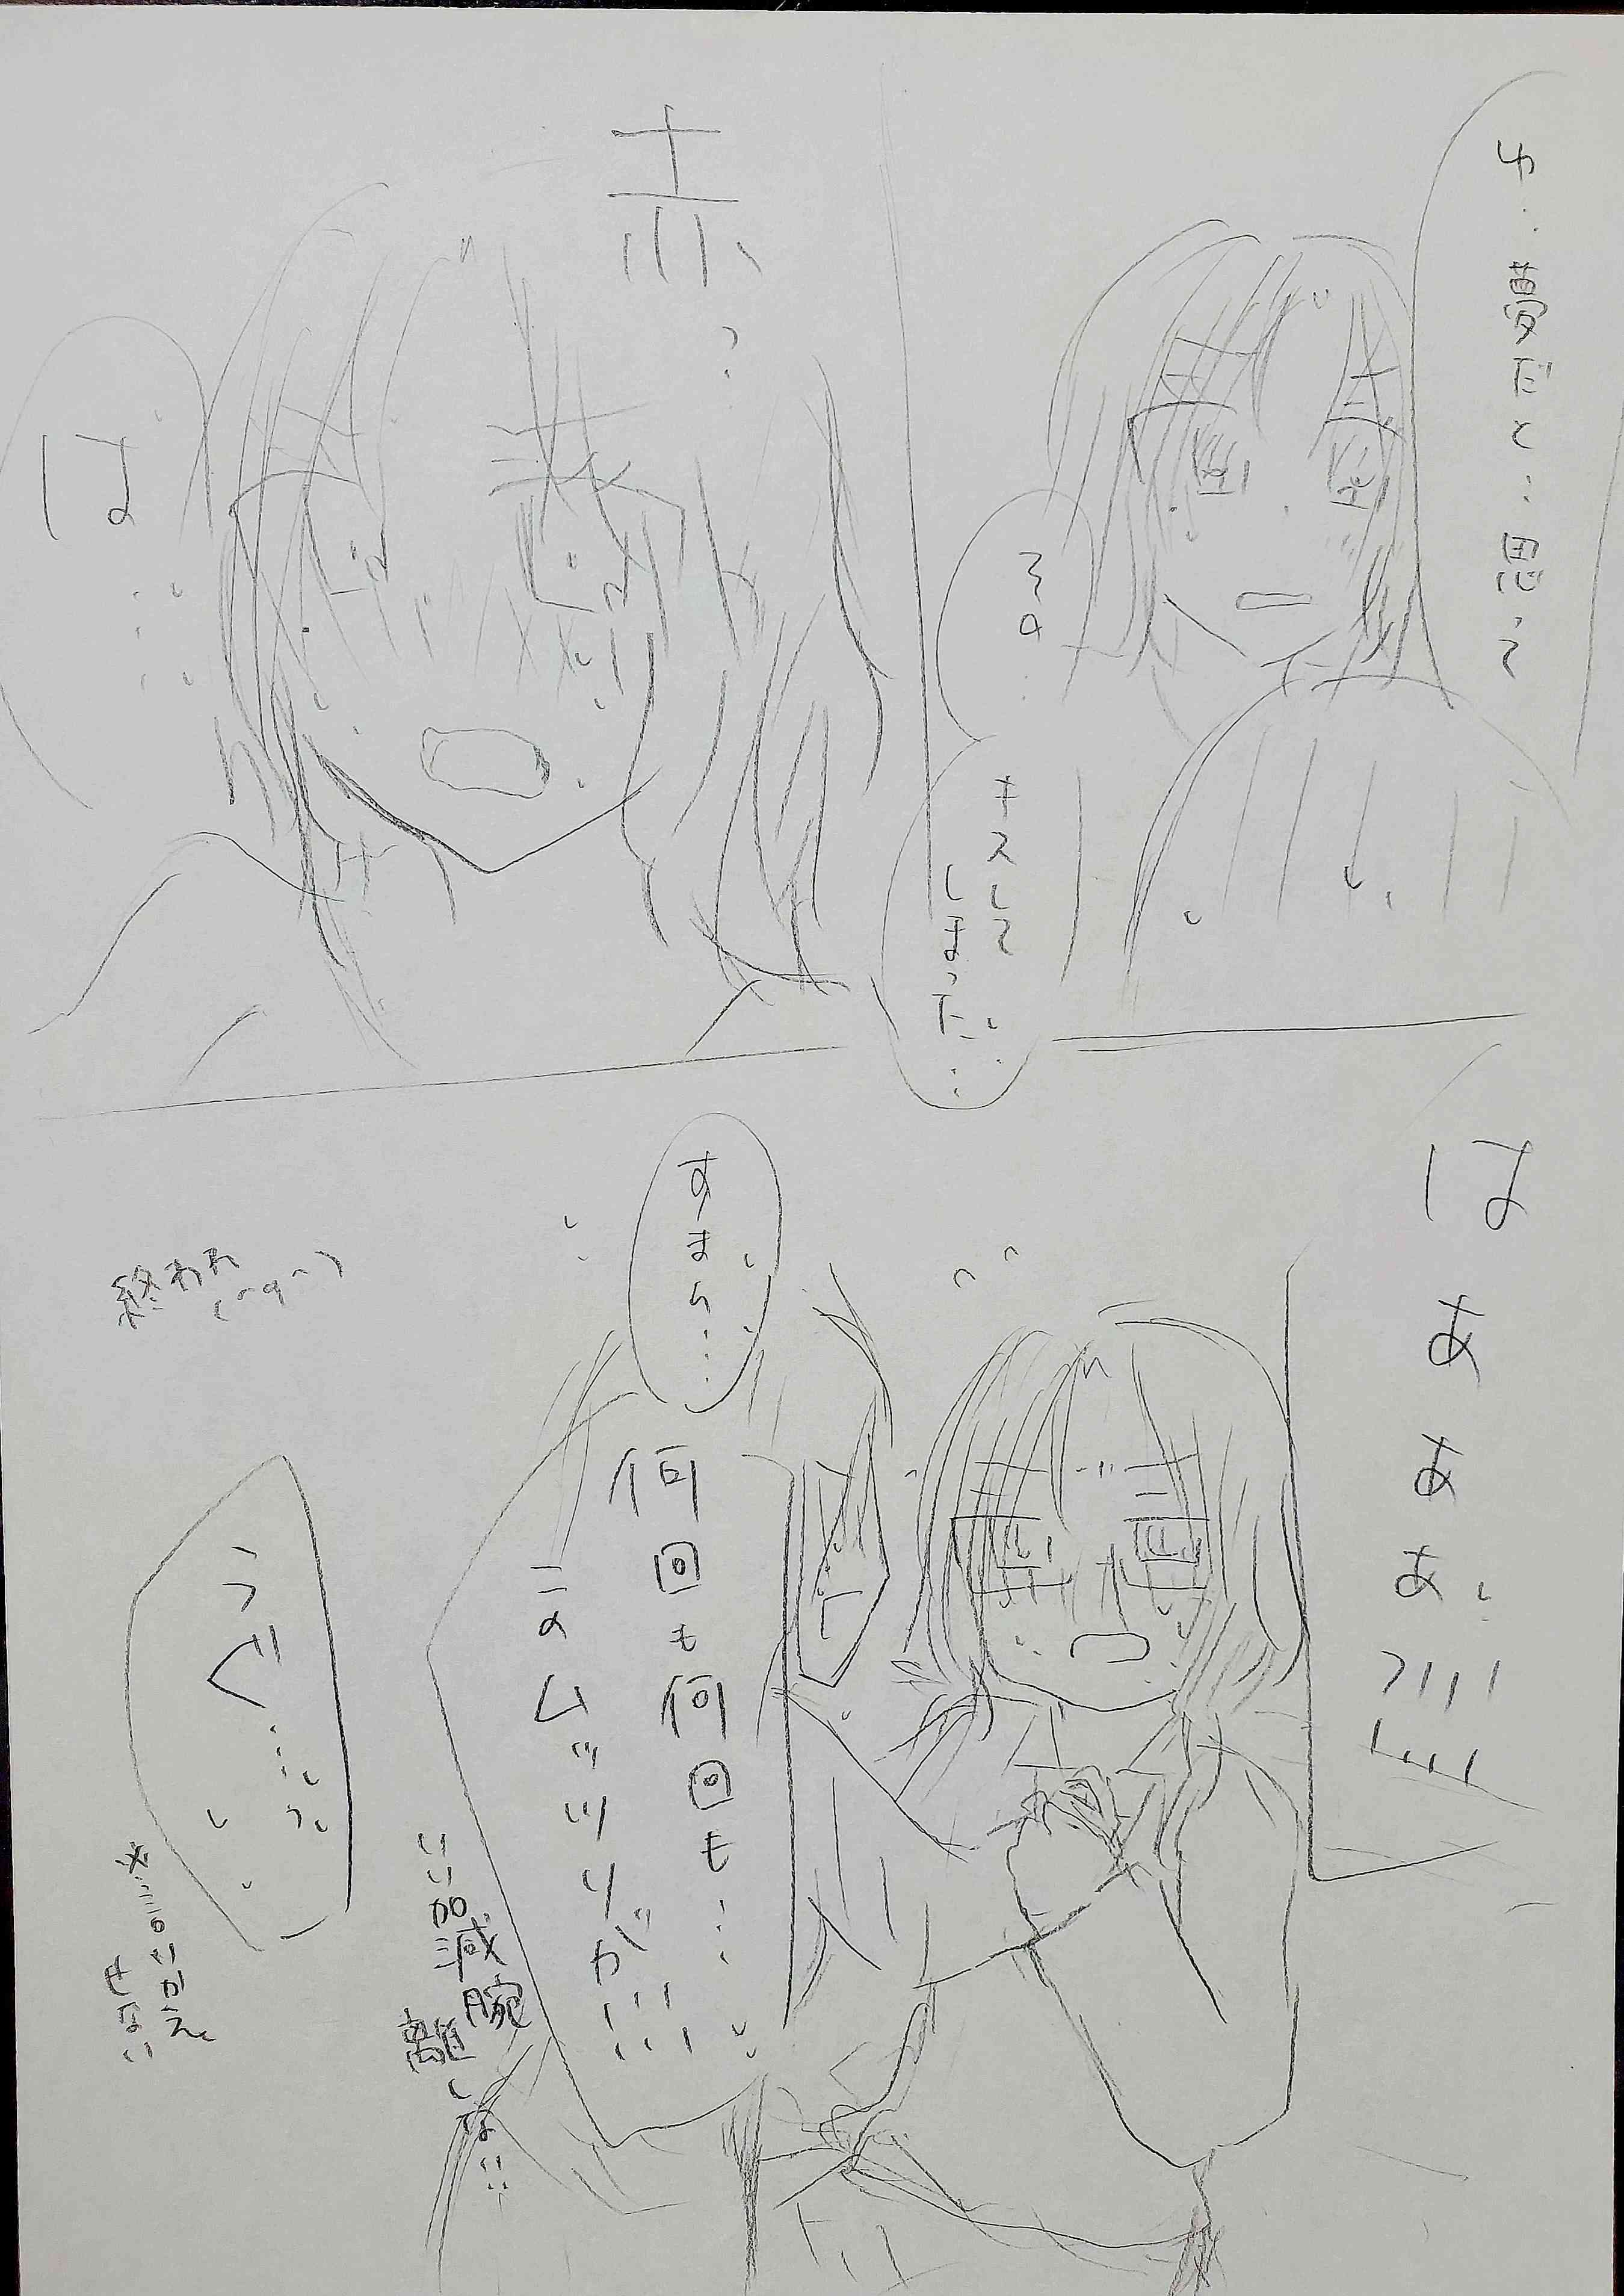 ゆ…夢だと…思って
その…
キスして
しまった…
は……
はあああ?!!!
すまん…
何回も何回も…
このムッツリが!!!
いい加減腕
離しな!!
うぐ…っ
※ここのいかえ
せない
終われ
(^q^)